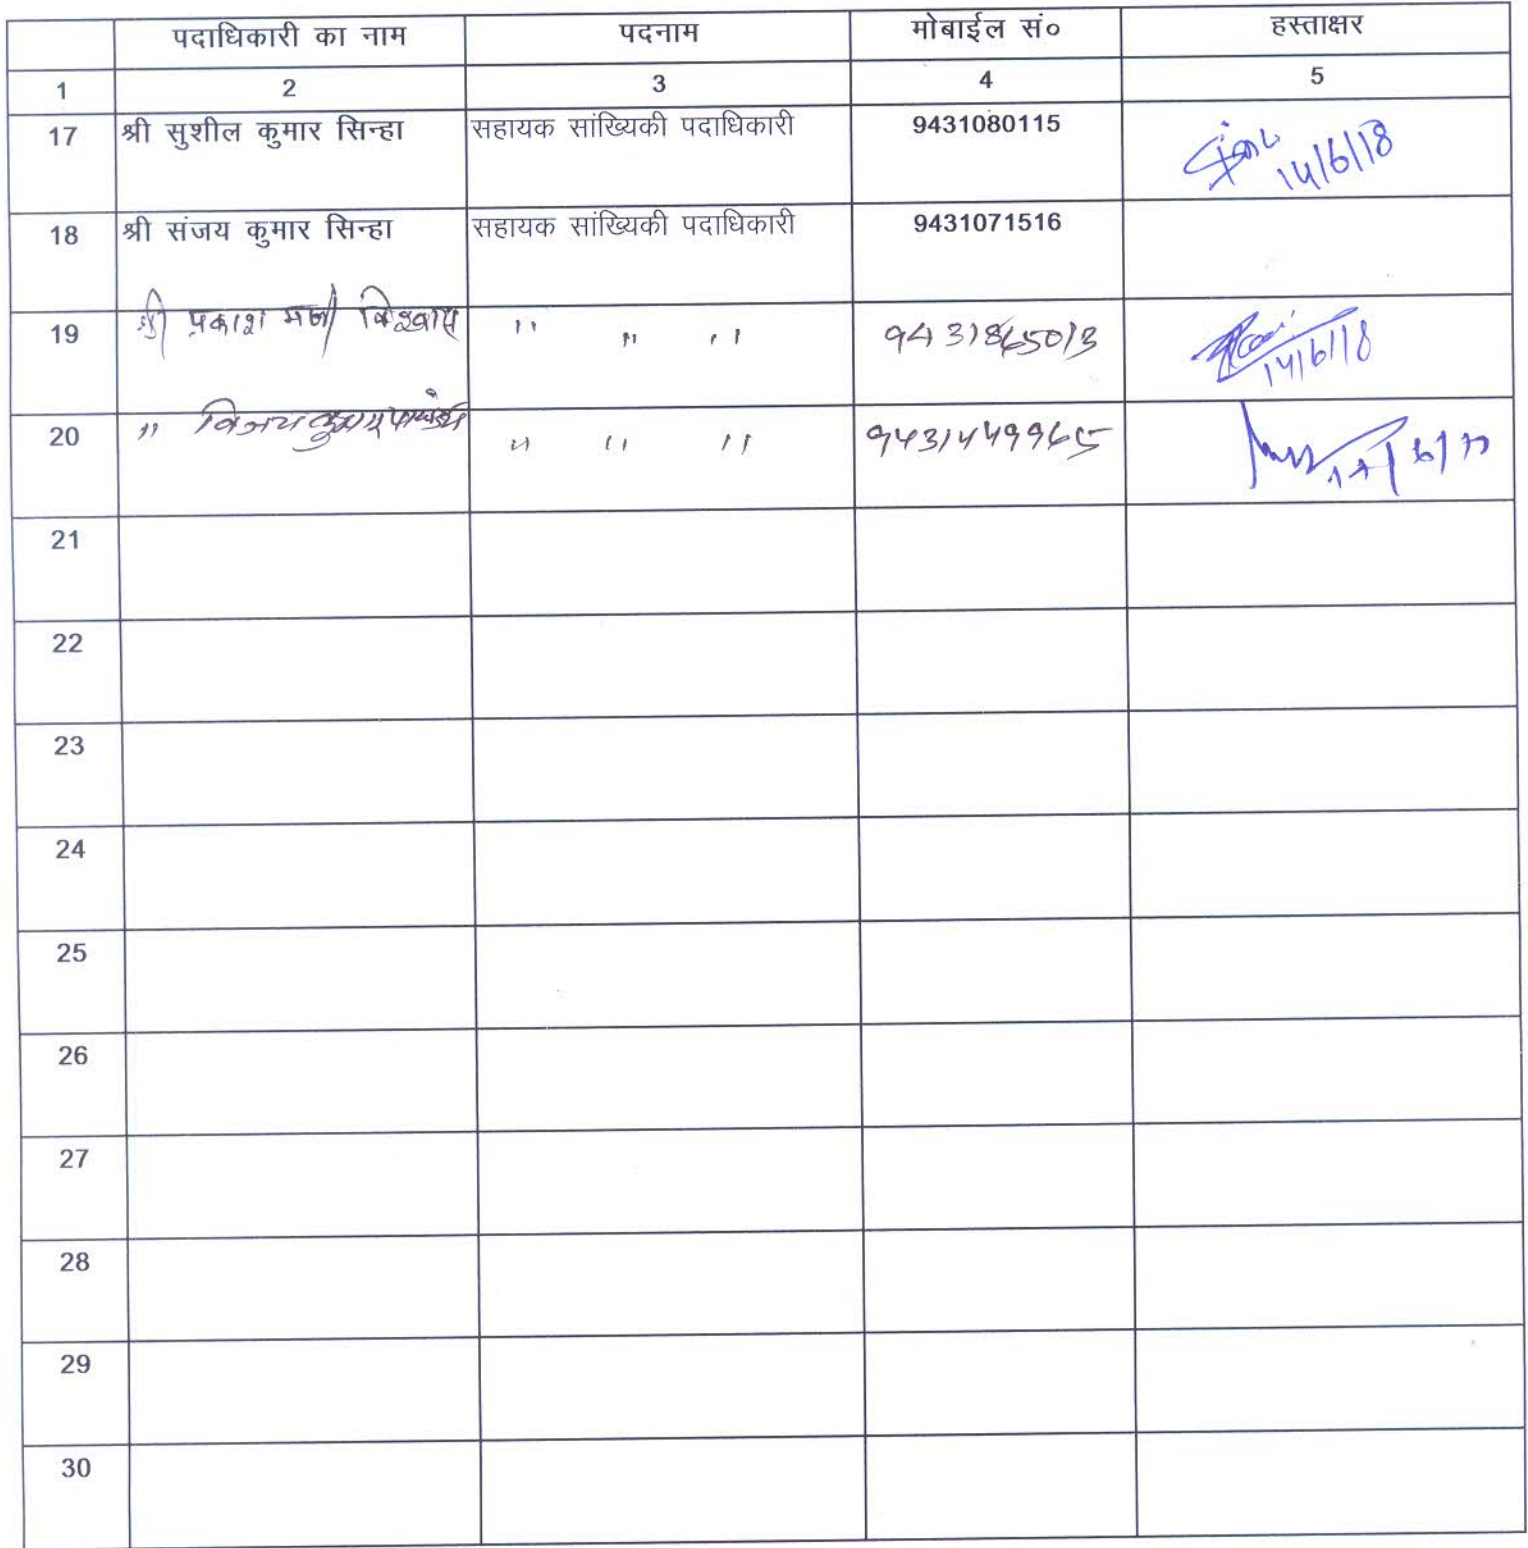 पदाधिकारी का नाम पदनाम मोबाईल सं० हस्ताक्षर
1 2 3 4 5
17 श्री सुशील कुमार सिन्हा सहायक सांख्यिकी पदाधिकारी 9431080115
14/6/18
18 श्री संजय कुमार सिन्हा सहायक सांख्यिकी पदाधिकारी 9431071516
19 श्री प्रकाश विश्वास " " "
14/6/18
20 " विजय कुमार पाण्डेय " " " 9431449965
21
22
23
24
25
26
27
28
29
30